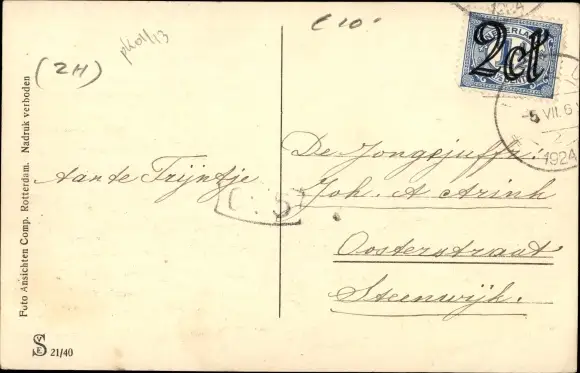 € 10-
pk04/13
(2H)
NEDERLAND
2ct
-5 VII. 6
1924
De Jongejuffr:
Tante Trijntje
Joh. A Arink
Oosterstraat
Steenwijk.
Foto Ansichten Comp. Rotterdam. Nadruk verboden
21/40